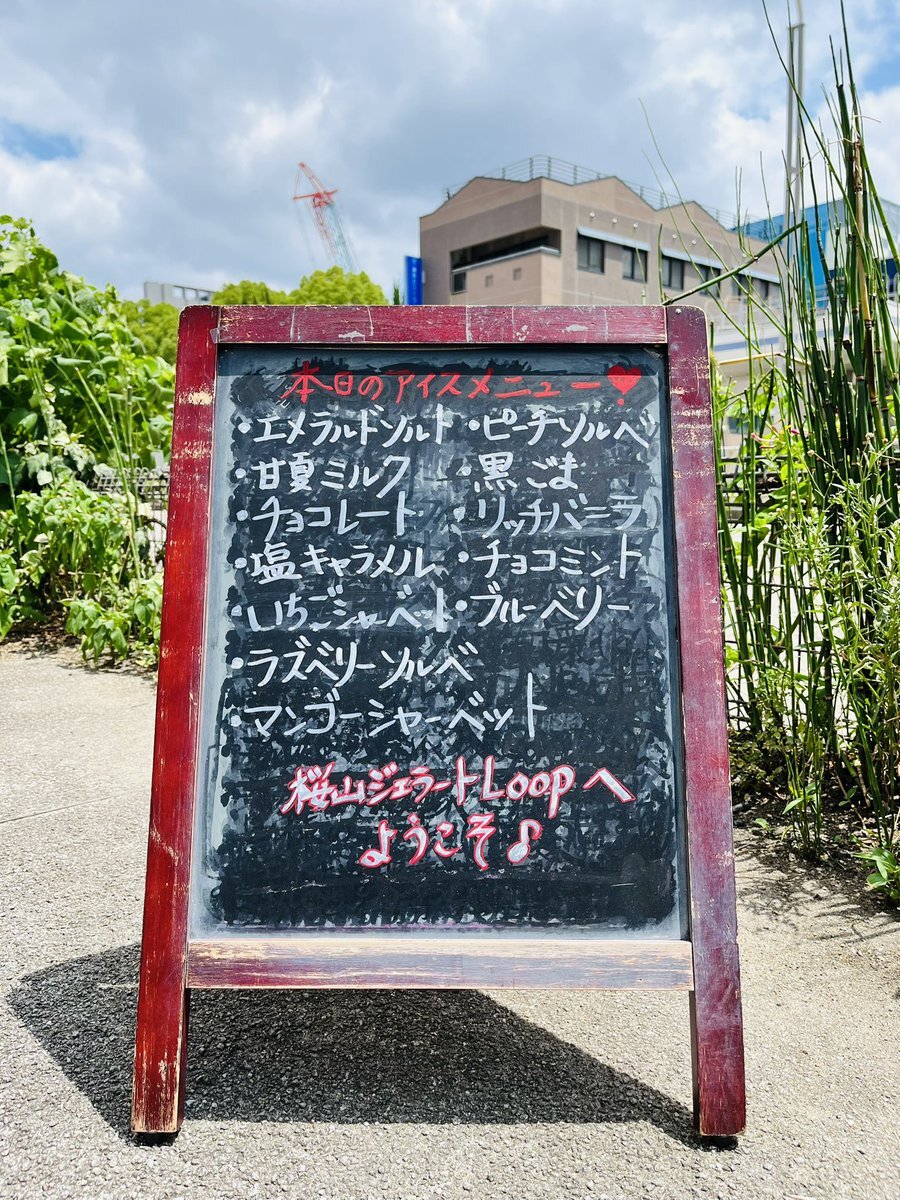 本日のアイスメニュー♥
・エメラルドソルト
・甘夏ミルク
・チョコレート
・塩キャラメル
・いちごシャーベット
・ラズベリーソルベ
・マンゴーシャーベット
・ピーチソルベ
・黒ごま
・リッチバニラ
・チョコミント
・ブルーベリー
桜山ジェラートLoopへ
ようこそ♪